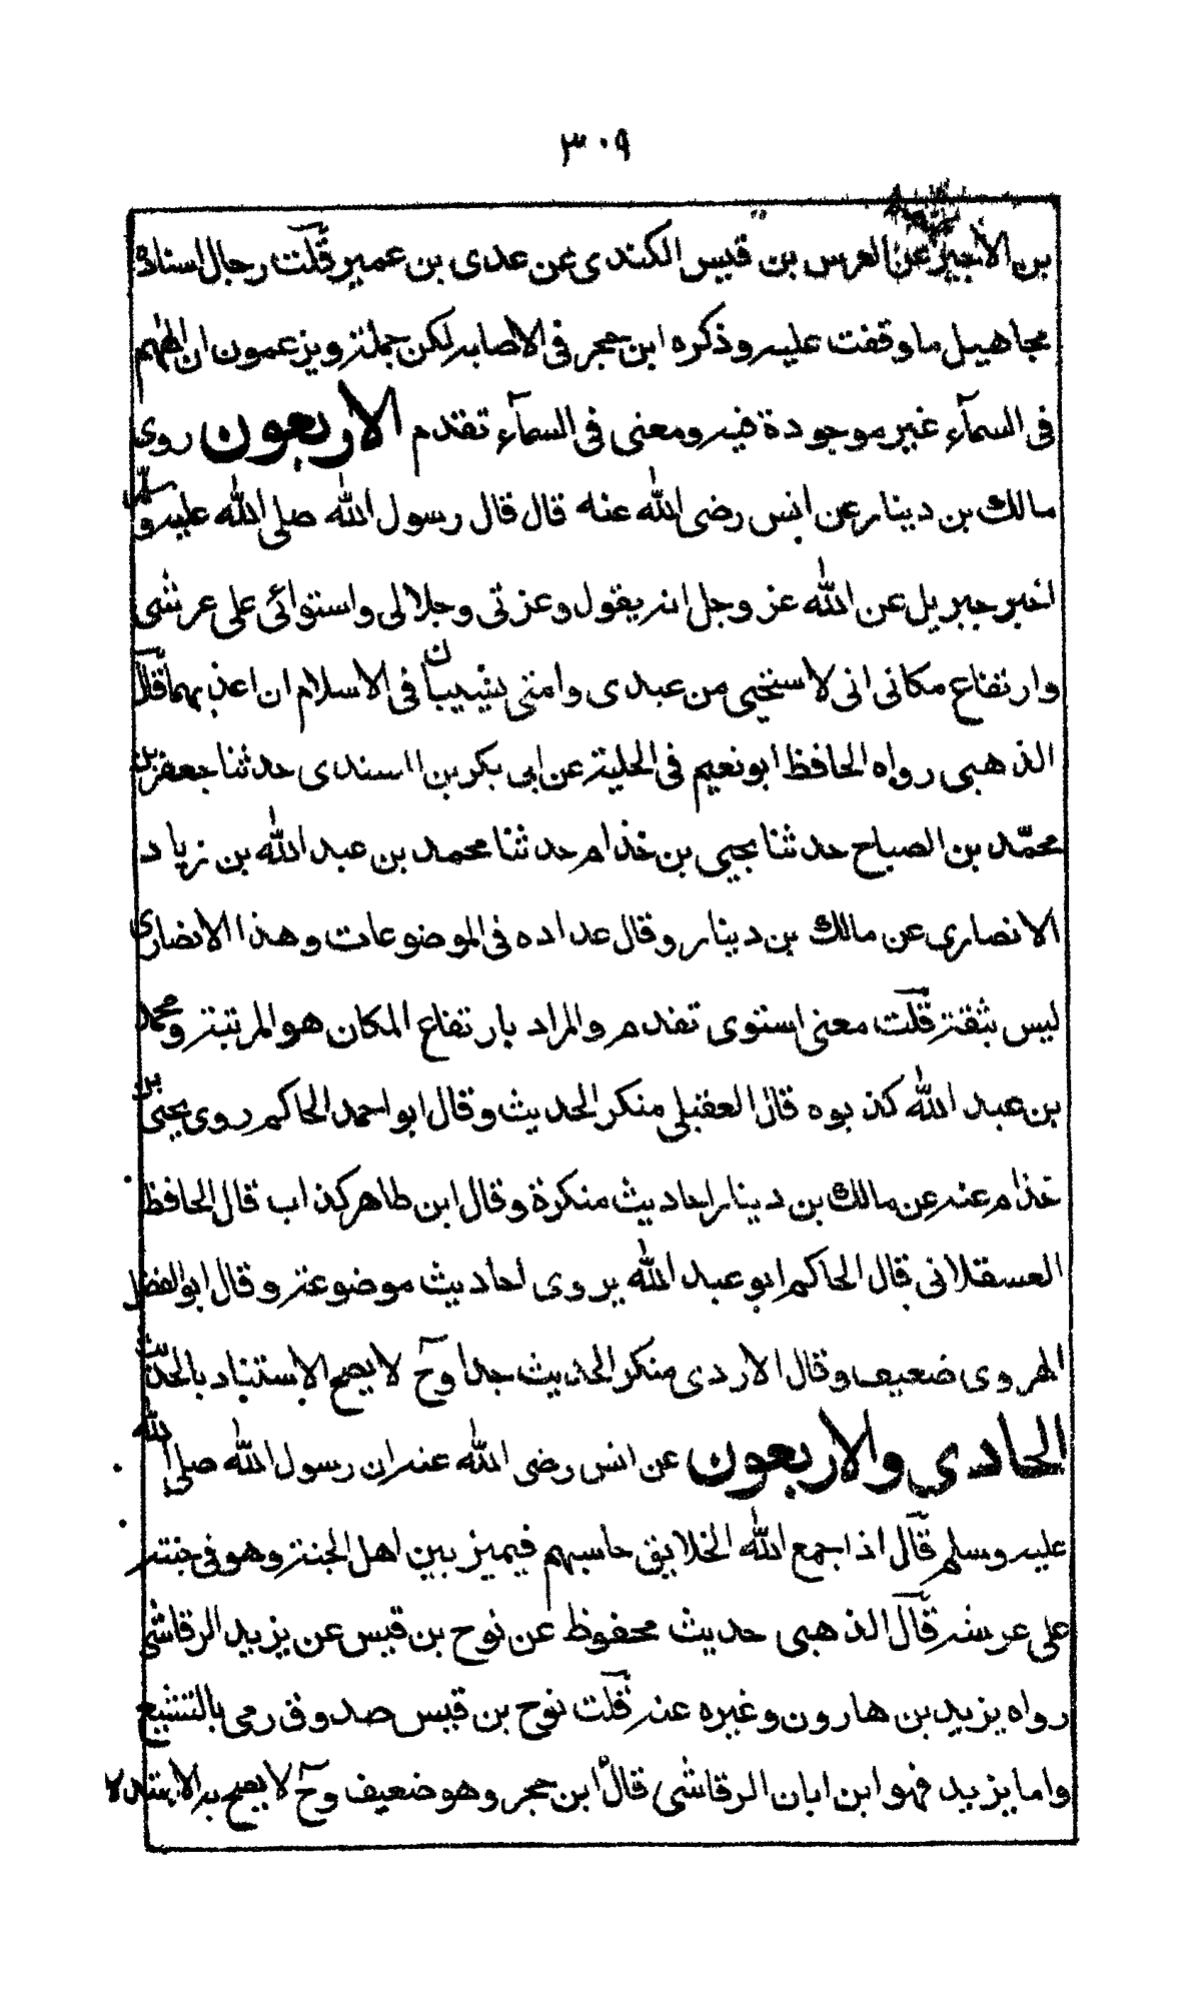 ٣٠٩
بن الأبجر عن العرس بن قيس الكندى عن عدى بن عمير قلت رجال اسناده
مجاهيل ما وقفت عليه وذكره ابن حجر فى الاصابه لكن جملة ويزعمون ان الههم
فى السمآء غير موجودة فيه ومعنى فى السمآء تقدم الاربعون روى
مالك بن دينار عن انس رضى الله عنه قال قال رسول الله صلى الله عليه وسلم
اخبر جبريل عن الله عز وجل انه يقول وعزتى وجلالى واستوائى على عرشى
وارتفاع مكانى انى لاستحيى من عبدى وامتى يشيبان فى الاسلام ان اعذبهما قال
الذهبى رواه الحافظ ابو نعيم فى الحلية عن ابى بكر بن السندى حدثنا جعفر بن
محمّد بن الصباح حدثنا يحيى بن خذام حدثنا محمد بن عبد الله بن زياد
الانصارى عن مالك بن دينار وقال عداده فى الموضوعات وهذا الانصارى
ليس بثقة قلت معنى استوى تقدم والمراد بارتفاع المكان هو المرتبة ومحمد
بن عبد الله كذبوه قال العقيلى منكر الحديث وقال ابو احمد الحاكم روى يحيى بن
خذام عنه عن مالك بن دينار احاديث منكرة وقال ابن طاهر كذاب قال الحافظ
العسقلانى قال الحاكم ابو عبد الله يروى احاديث موضوعة وقال ابو الفضل
الهروى ضعيف وقال الازدى منكر الحديث جدا وح لا يصح الاستناد بالحديث
الحادى والاربعون عن انس رضى الله عنه ان رسول الله صلى الله
عليه وسلم قال اذا جمع الله الخلايق حاسبهم فيميز بين اهل الجنة وهو فى جنته
على عرشه قال الذهبى حديث محفوظ عن نوح بن قيس عن يزيد الرقاشى
رواه يزيد بن هارون وغيره عنه قلت نوح بن قيس صدوق رمى بالتشيع
واما يزيد فهو ابن ابان الرقاشى قال ابن حجر وهو ضعيف وح لا يصح به